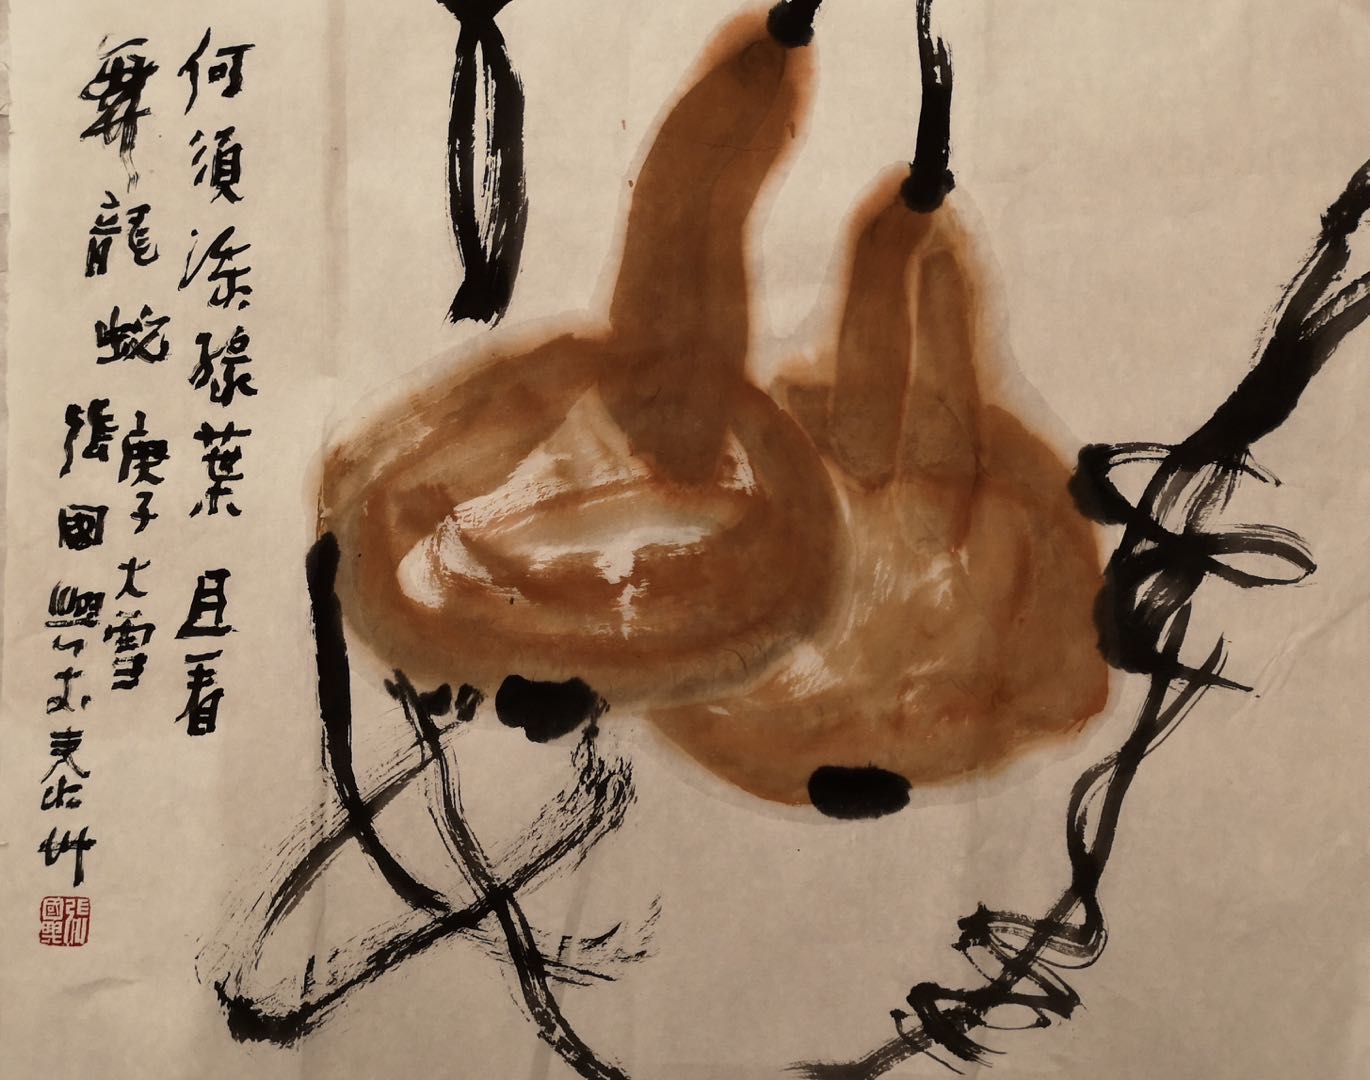 何須添綠葉且看
舞龍蛇
庚子大雪
張國興
張
國興